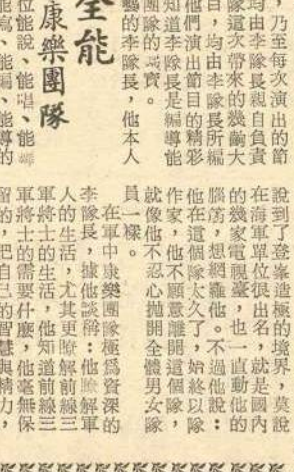 ，乃至每次演出的節
均由李隊長親自負責
隊這次帶來的幾齣大
目，均由李隊長所編
他們演出節目的精彩
知道李隊長是編導能
團隊的瑰寶。
藝的李隊長，他本人
全能
康樂團隊
位能說、能唱、能
能寫、能編、能導的
說到了登峯造極的境界，莫說
在海軍單位很出名，就是國內
的幾家電視臺，也一直動他的
腦筋，想網羅他。不過他說：
他在這個隊太久了，始終以隊
作家，他不願意離開這個隊，
就像他不忍心拋開全體男女隊
員一樣。
在軍中康樂團隊極爲資深的
李隊長，據他談稱：他瞭解軍
人的生活，尤其更瞭解前線三
軍將士的生活，他知道前線三
軍將士的需要什麼，他毫無保
留的，把自己的智慧與精力，